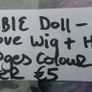 BBIE Doll -
ove Wig + H
nges Colour
ER €5